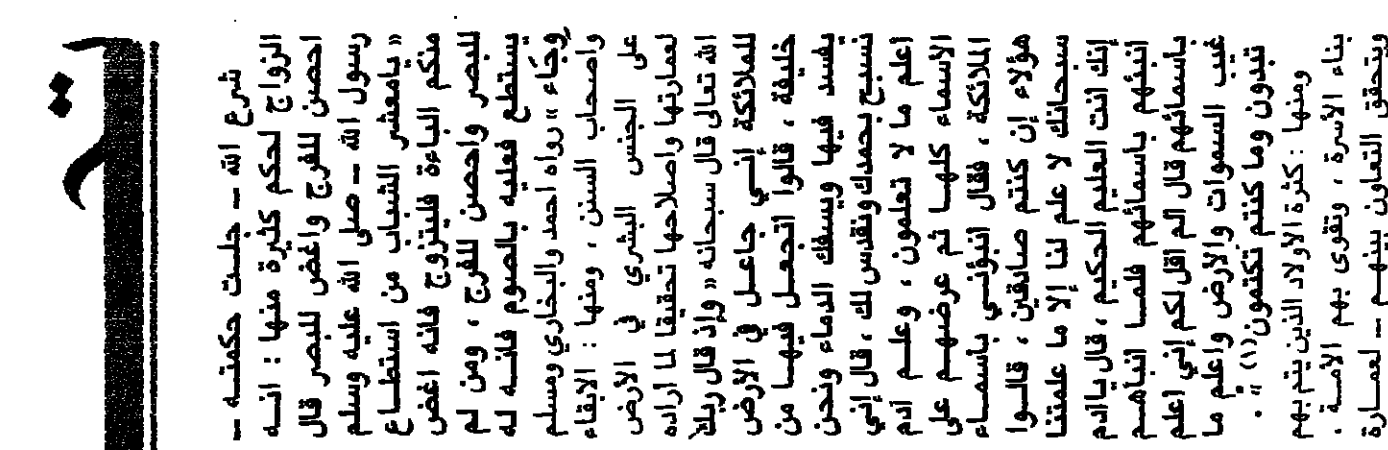 شرع الله ـ جلت حكمته ـ
الزواج لحكم كثيرة منها : انه
احصن للفرج واغض للبصر قال
رسول الله ـ صلى الله عليه وسلم
« يامعشر الشباب من استطاع
منكم الباءة فليتزوج فانه اغض
للبصر واحصن للفرج ، ومن لم
يستطع فعليه بالصوم فانه له
وجاء » رواه احمد والبخاري ومسلم
واصحاب السنن ، ومنها : الابقاء
على الجنس البشري في الأرض
لعمارتها واصلاحها تحقيقا لما اراده
الله تعالى قال سبحانه « وإذ قال ربك
للملائكة إني جاعل في الأرض
خليفة ، قالوا اتجعل فيها من
يفسد فيها ويسفك الدماء ونحن
نسبح بحمدك ونقدس لك ، قال إني
أعلم ما لا تعلمون ، وعلم آدم
الأسماء كلها ثم عرضهم على
الملائكة ، فقال انبؤني باسماء
هؤلاء إن كنتم صادقين ، قالوا
سبحانك لا علم لنا إلا ما علمتنا
إنك انت العليم الحكيم ، قال ياآدم
انبئهم باسمائهم فلما انباهم
باسمائهم قال الم اقل لكم إني اعلم
غيب السموات والأرض واعلم ما
تبدون وما كنتم تكتمون(١) » .
ومنها : كثرة الاولاد الذين يتم بهم
بناء الأسرة ، وتقوى بهم الأمة .
ويتحقق التعاون بينهم ـ لعمارة